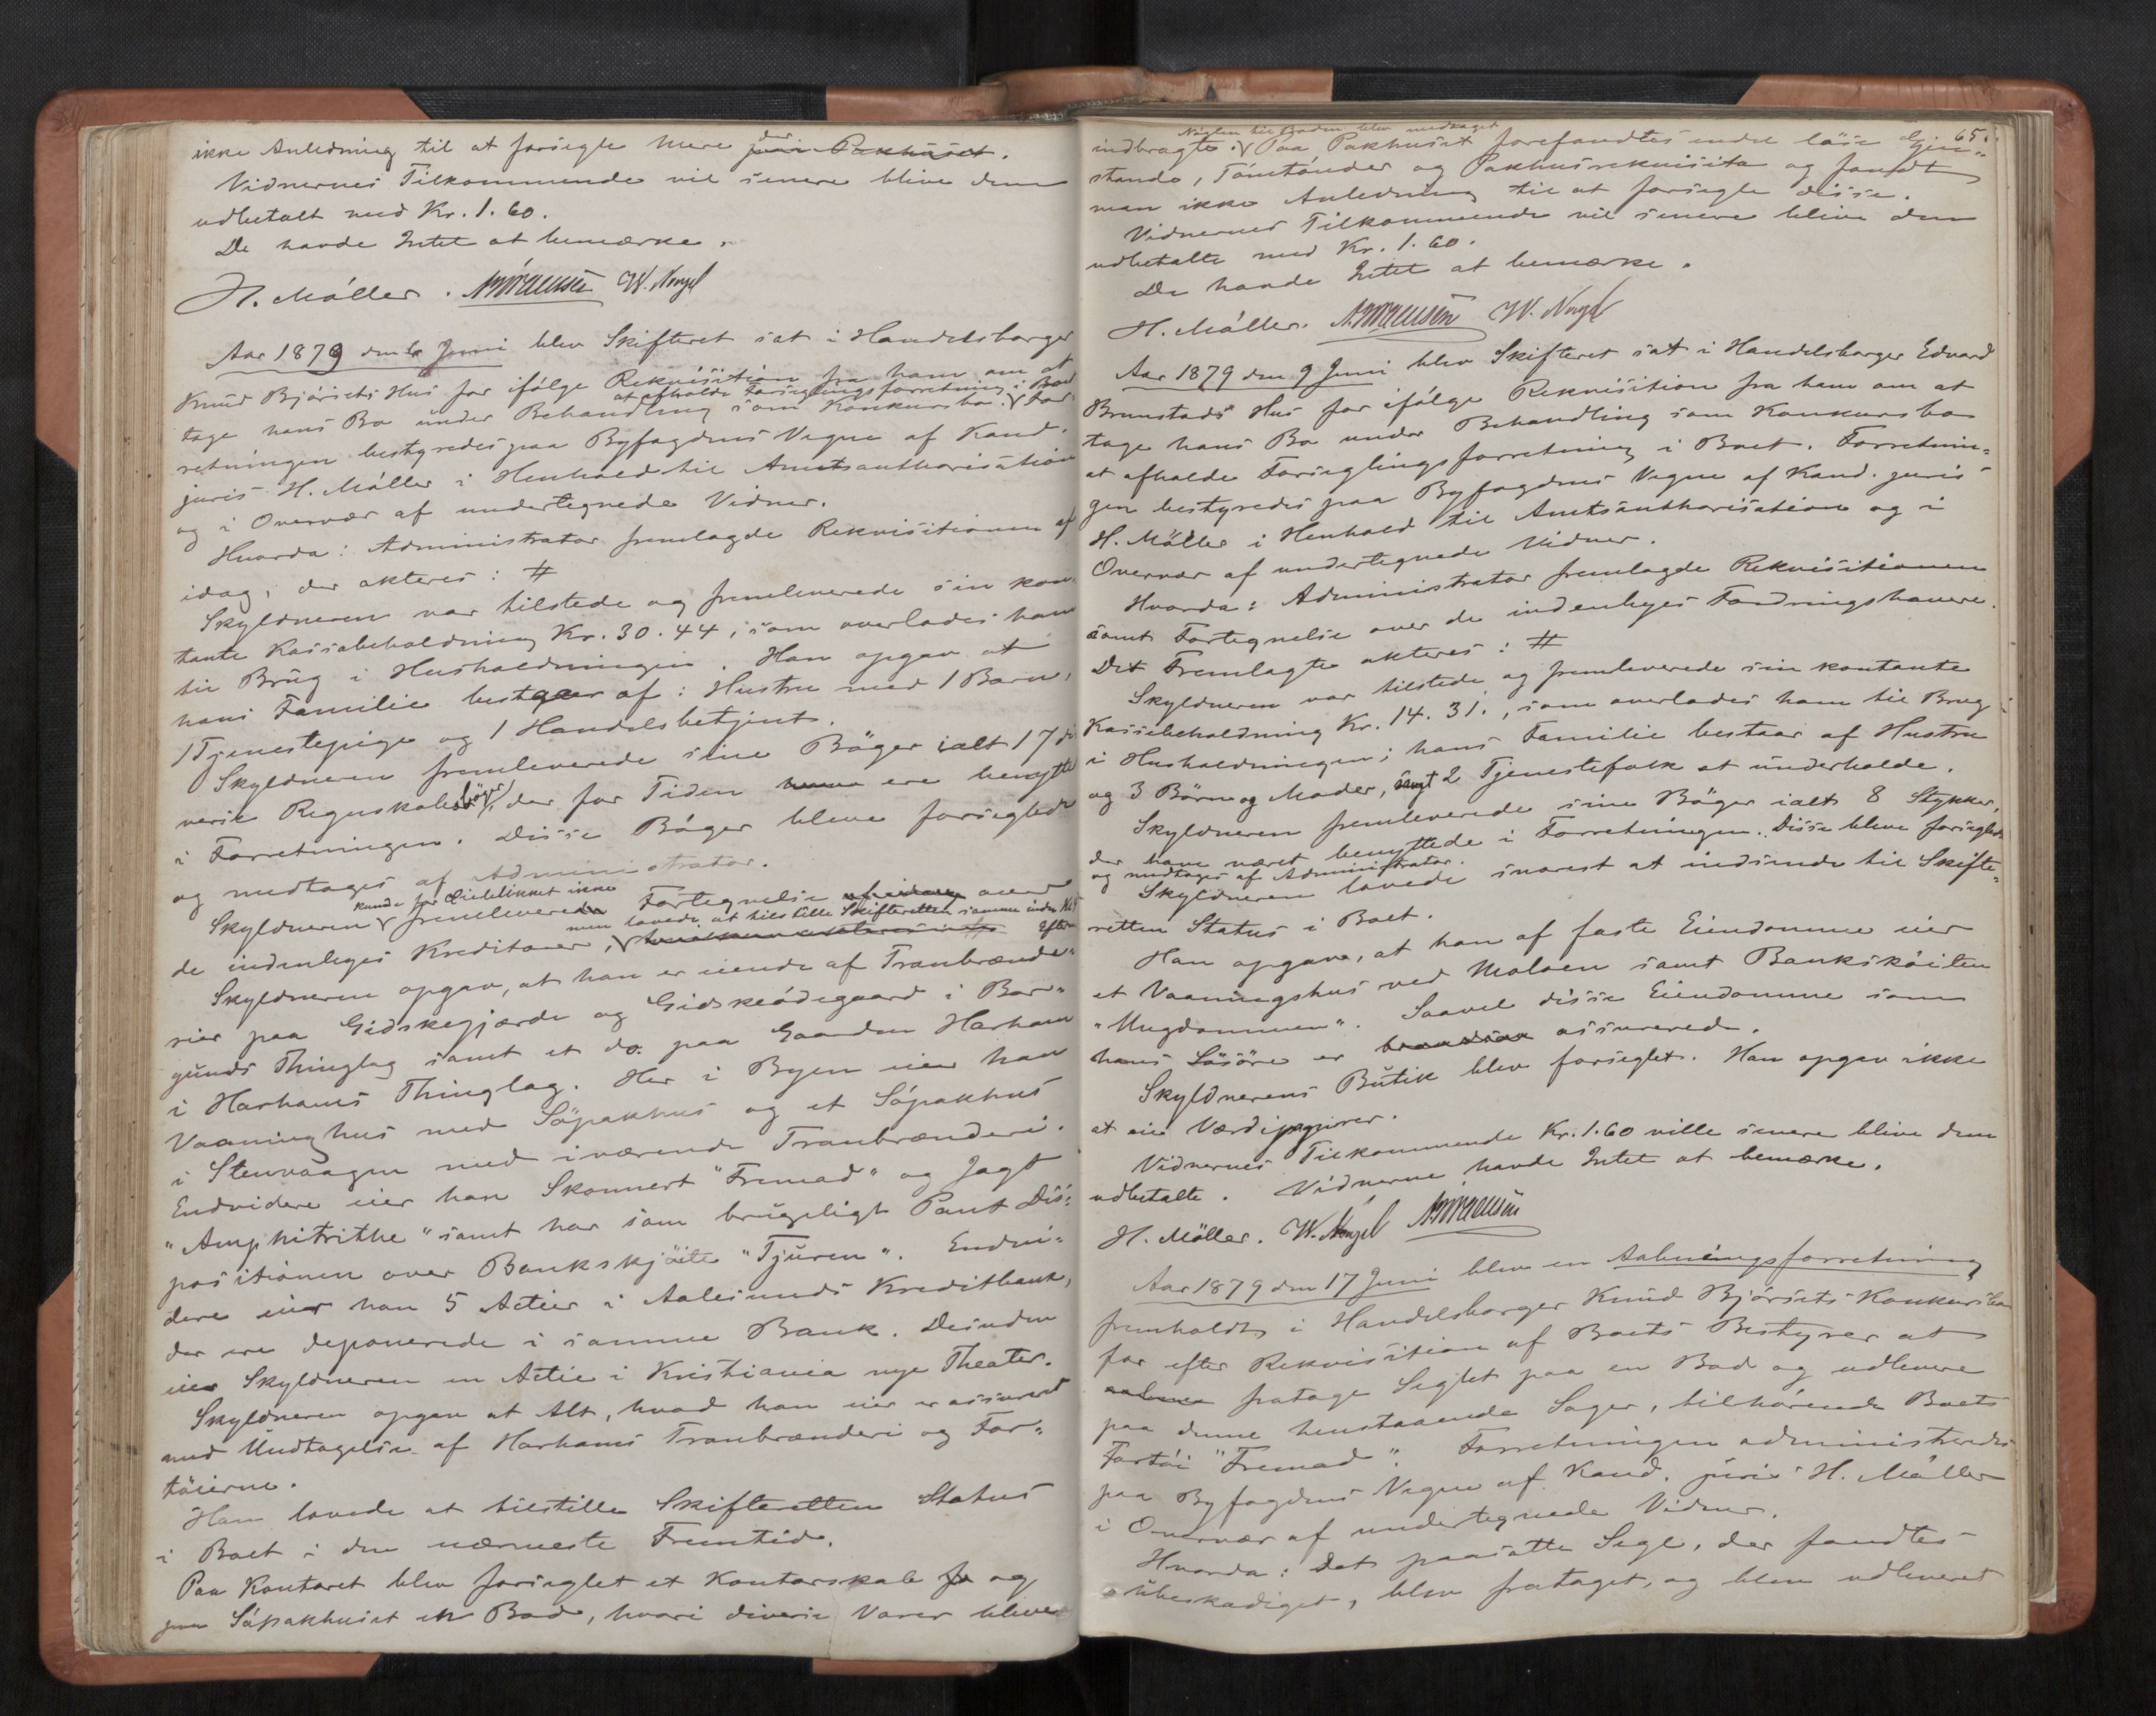 ikke Anledning til at forsegle mere paa Pakhuset.
Vidnernes Tilkommende vil senere blive dem
udbetalt med Kr. 1.60.
De havde Intet at bemærke.
H. Möller. W. Nagel
Aar 1879 den 6 Juni blev Skifteret sat i Handelsborger
Knud Björsets Hus for ifölge Rekvisition fra ham om at
at afholde Forseglingsforretning i Boet
tage hans Bo under Behandling som Konkursbo. For-
retningen bestyredes paa Byfogdens Vegne af Kand.
juris H. Möller i Henhold til Amtsauthorisation
og i Overvær af undertegnede Vidner.
Hvorda: Administrator fremlagde Rekvisitionen af
idag, der akteres: #
Skyldneren var tilstede og fremleverede sin kon-
tante Kassabeholdning Kr. 30.44, som overlades ham
til Brug i Husholdningen. Han opgav at
hans Familie bestaar af: Hustru med 1 Barn,
1 Tjenestepige og 1 Handelsbetjent.
Skyldneren fremleverede sine Böger ialt 17 di-
verse Regnskabsböger, der for Tiden ere benyttede
i Forretningen. Disse Böger bleve forseglede
og medtages af Administrator.
kunde for Öieblikket ikke
Skyldneren fremlevere Fortegnelse over
men lovede at tilstille Skifteretten samme inden
de indenbyes Kreditorer,
Skyldneren opgav, at han er eiende af Tranbrænde-
rier paa Gidskegjærde og Gidskeödegaard i Bor-
gunds Thinglag samt et do. paa Gaarden Harham
i Harhams Thinglag. Her i Byen eier han
Vaaninghus med Söpakhus og et Söpakhus
i Stenvaagen med iværende Tranbrænderi.
Endvidere eier han Skonnert "Fremad" og Jagt
"Amphitrithe" samt har som brugeligt Pant Dis-
positionen over Bankskjöite "Tjuren". Endvi-
dere eier han 5 Actier i Aalesunds Kreditbank,
der ere deponerede i samme Bank. Desuden
eier Skyldneren en Actie i Kristiania nye Theater.
Skyldneren opgav at Alt, hvad han eier er assureret
med Undtagelse af Harhams Tranbrænderi og Far-
töierne.
Han lovede at tilstille Skifteretten Status
i Boet i den nærmeste Fremtid.
Paa Kontoret blev forseglet et Kontorskab og
paa Söpakhuset en Bod, hvori diverse Varer bleve
65.
Nöglen til Boden blev medtaget
indbragte. Paa Pakhuset forefandtes endel löse Gjen-
stande, Tomtönder og Pakhusrekvisita og fandt
man ikke Anledning til at forsegle disse.
Vidnernes Tilkommende vil senere blive dem
udbetalte med Kr. 1.60.
De havde Intet at bemærke.
H. Möller. W. Nagel
Aar 1879 den 9 Juni blev Skifteret sat i Handelsborger Edvard
Brunstads Hus for ifölge Rekvisition fra ham om at
tage hans Bo under Behandling som Konkursbo
at afholde Forseglingsforretning i Boet. Forretnin-
gen bestyredes paa Byfogdens Vegne af Kand. juris
H. Möller i Henhold til Amtsauthorisation og i
Overvær af undertegnede Vidner.
Hvorda: Administrator fremlagde Rekvisitionen
samt Fortegnelse over de indenbyes Fordringshavere.
Det Fremlagte akteres: #
Skyldneren var tilstede og fremleverede sin kontante
Kassebeholdning Kr. 14.31., som overlades ham til Brug
i Husholdningen; hans Familie bestaar af Hustru
og 3 Börn og Moder, samt 2 Tjenestefolk at underholde.
Skyldneren fremleverede sine Böger ialt 8 Stykker,
der have været benyttede i Forretningen. Disse bleve forseglede
og medtages af Administrator.
Skyldneren lovede snarest at indsende til Skifte-
retten Status i Boet.
Han opgav, at han af faste Eiendomme eier
et Vaaningshus ved Moloen samt Banksköiten
"Ungdommen". Saavel disse Eiendomme som
hans Lösöre er assurerede.
Skyldnerens Butik blev forseglet. Han opgav ikke
at eie Værdipapirer.
Vidnernes Tilkommende Kr. 1.60 ville senere blive dem
udbetalte. Vidnerne havde Intet at bemærke.
H. Möller. W. Nagel
Aar 1879 den 17 Juni blev en Aabningsforretning
fremholdt i Handelsborger Knud Björsets Konkursbo
for efter Rekvisition af Boets Bestyrer at
fratage Seglet paa en Bod og udlevere
paa denne henstaaende Sager, tilhörende Boets
Fartöi "Fremad". Forretningen administredes
paa Byfogdens Vegne af Kand. juris H. Möller
i Overvær af undertegnede Vidner.
Hvorda: Det paasatte Segl, der fandtes
ubeskadiget, blev frataget, og blev udleveret